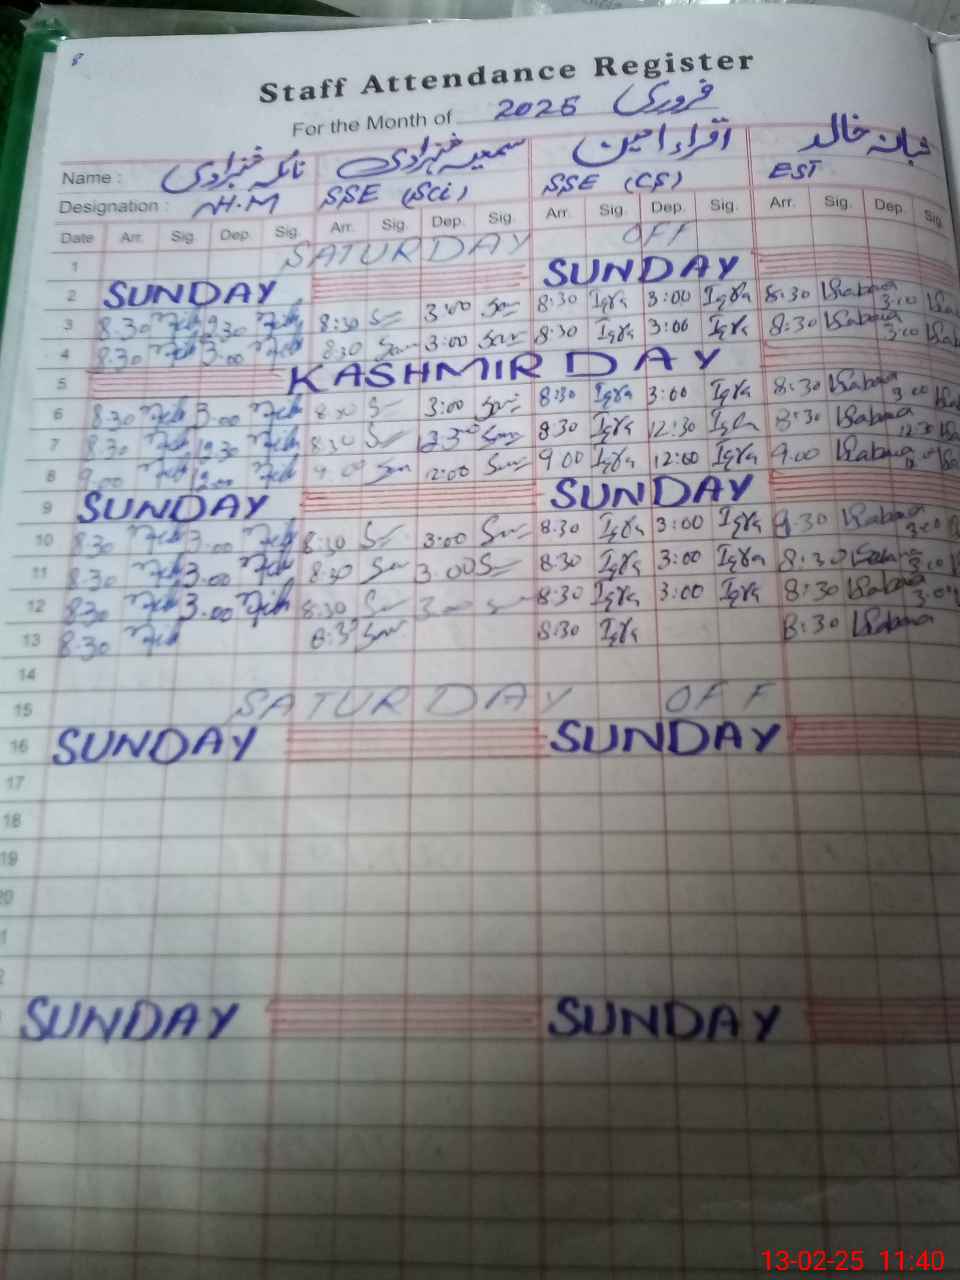 8
Staff Attendance Register
For the Month of 2025 فروری
Name : نائلہ شہزادی سمعیہ شہزادی اقراء امین شبانہ خالد
Designation : H.M SSE (Sci) SSE (CS) EST
Date Arr. Sig. Dep. Sig. Arr. Sig. Dep. Sig. Arr. Sig. Dep. Sig. Arr. Sig. Dep. Sig.
1 SATURDAY OFF
2 SUNDAY SUNDAY
3 8.30 12.30 8:30 3:00 8:30 Iqra 3:00 Iqra 8:30 3:00
4 8.30 3.00 8:30 3:00 8:30 Iqra 3:00 Iqra 8:30 3:00
5 KASHMIR DAY
6 8.30 3.00 8:30 3:00 8:30 Iqra 3:00 Iqra 8:30 3:00
7 8.30 12.30 8:30 12:30 8:30 Iqra 12:30 Iqra 8:30 12:30
8 9.00 12.00 9:00 12:00 9:00 Iqra 12:00 Iqra 9:00
9 SUNDAY SUNDAY
10 8.30 3.00 8:30 3:00 8:30 Iqra 3:00 Iqra 8:30 3:00
11 8.30 3.00 8:30 3:00 8:30 Iqra 3:00 Iqra 8:30 3:00
12 8.30 3.00 8:30 3:00 8:30 Iqra 3:00 Iqra 8:30 3:00
13 8.30 8:30 8:30 Iqra 8:30
14
15 SATURDAY OFF
16 SUNDAY SUNDAY
17
18
19
SUNDAY SUNDAY
13-02-25 11:40